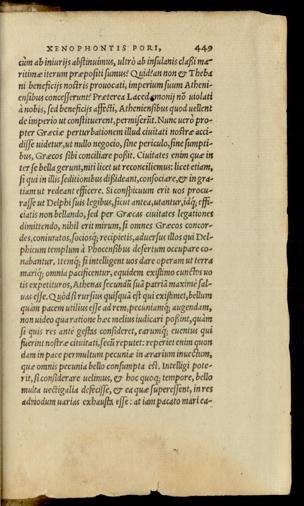 XENOPHONTIS PORI, 449
cùm ab iniurijs abstinuimus, ultrò ab insulanis classi ma-
ritimæ iterum præpositi sumus? Quid? an non & Theba
ni beneficijs nostris prouocati, imperium suum Atheni-
ensibus concesserunt? Præterea Lacedæmonij nõ uiolati
à nobis, sed beneficijs affecti, Atheniensibus quod uellent
de imperio ut constituerent, permiserũt. Nunc uerò pro-
pter Græciæ perturbationem illud ciuitati nostræ acci-
disse uidetur, ut nullo negocio, sine periculo, sine sumpti-
bus, Græcos sibi conciliare possit. Ciuitates enim quæ in
ter se bella gerunt, niti licet ut reconciliemus: licet etiam,
si qui in illis seditionibus dissideant, consociare, & in gra-
tiam ut redeant efficere. Si conspicuum erit uos procu-
rasse ut Delphi suis legibus, sicut antea, utantur, idq́, effi-
ciatis non bellando, sed per Græcas ciuitates legationes
dimittendo, nihil erit mirum, si omnes Græcos concor-
des, coniuratos, sociosq́, recipietis, aduersus illos qui Del-
phicum templum à Phocensibus desertum occupare co-
nabantur. Itemq́; si intelligent uos dare operam ut terra
mariq́; omnia pacificentur, equidem existimo cunctos uo
tis expetituros, Athenas secundũ suã patriã maximè sal-
uas esse. Quòd si rursus quisquã est qui existimet, bellum
quàm pacem utilius esse ad rem pecuniamq́; augendam,
non uideo qua ratione hæc melius iudicari possint, quàm
si quis res ante gestas consideret, earumq́; euentus qui
fuerint nostræ ciuitati, secũ reputet: reperiet enim quon
dam in pace permultum pecuniæ in ærarium inuectum,
quæ omnis pecunia bello consumpta est. Intelligi pote-
rit, si considerare uelimus, & hoc quoq́; tempore, bello
multa uectigalia defecisse, & ea quæ superessent, in res
admodum uarias exhausta esse: at iam pacato mari ea-